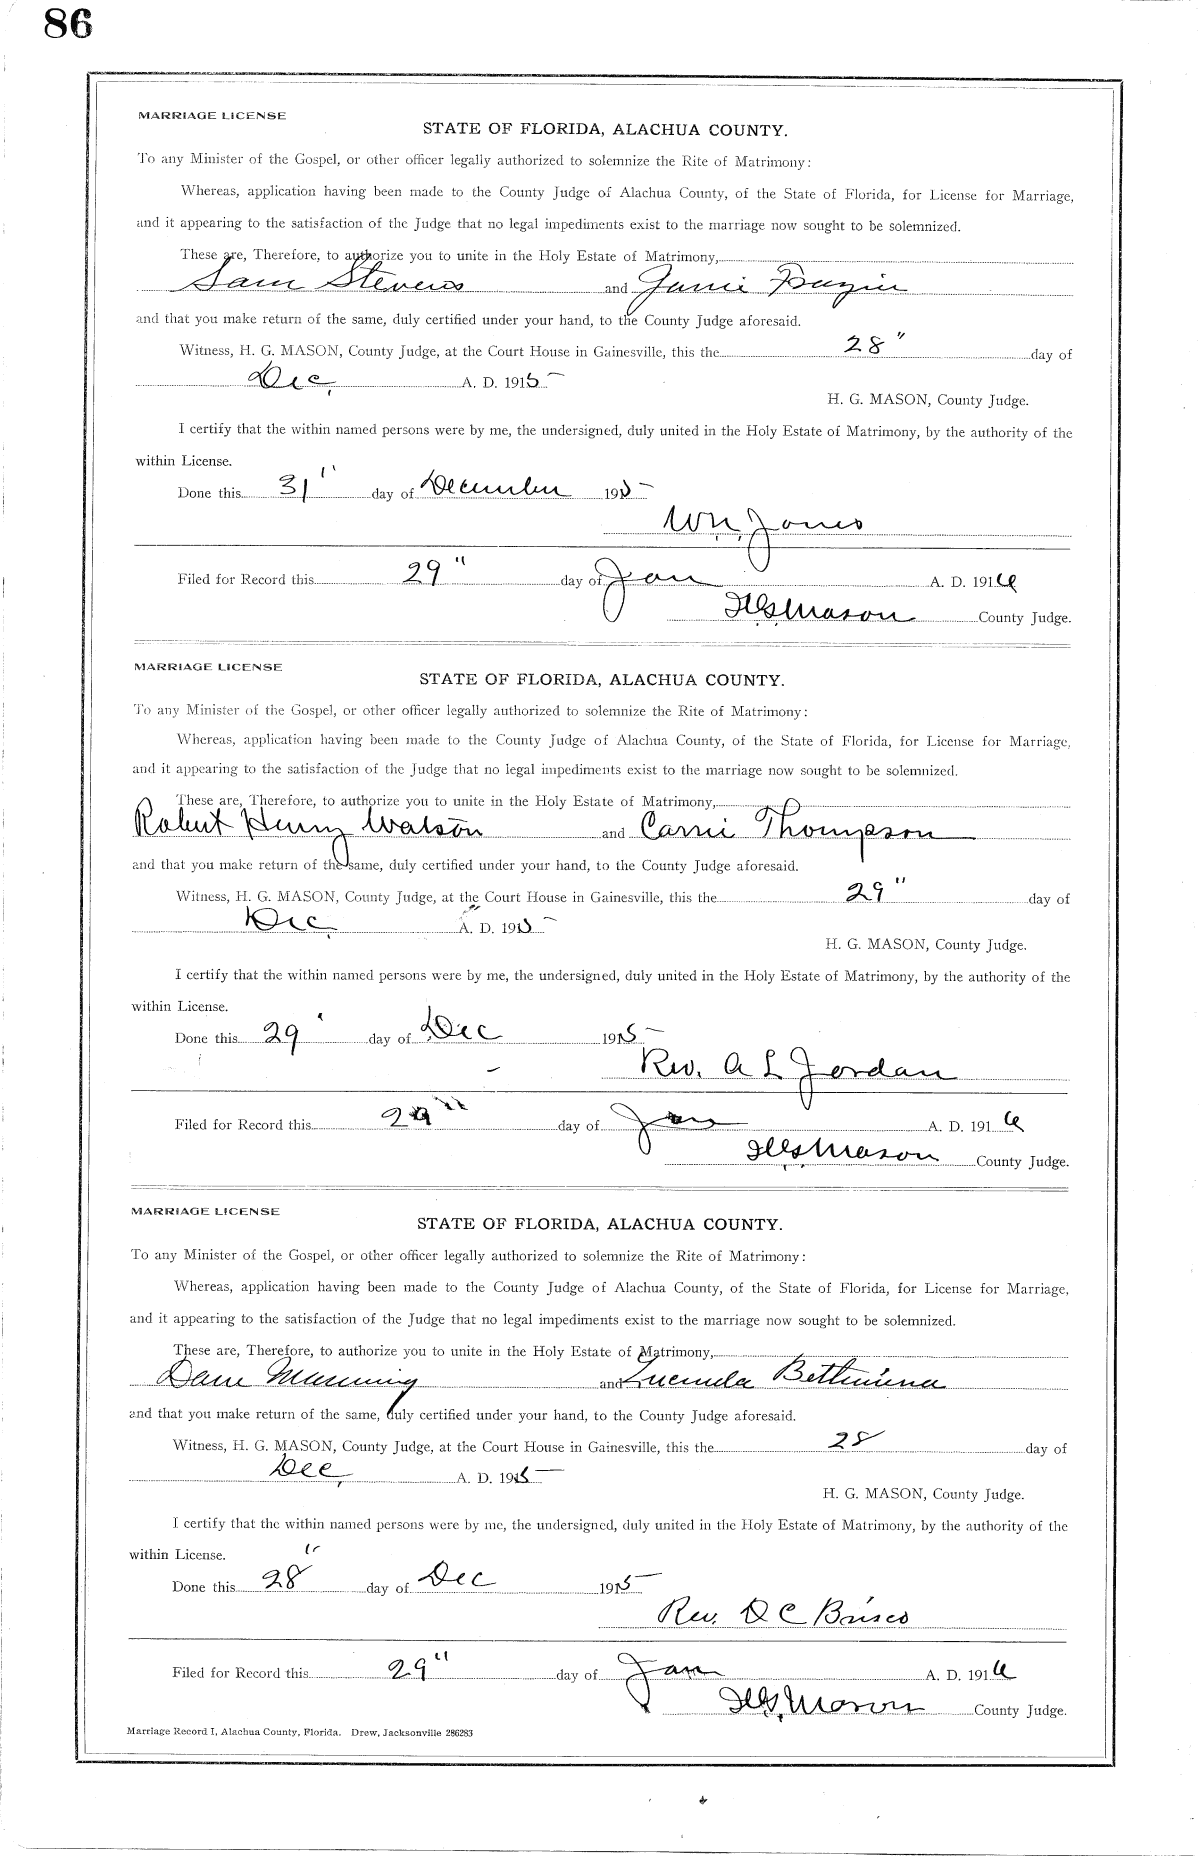 86
MARRIAGE LICENSE
STATE OF FLORIDA, ALACHUA COUNTY.
To any Minister of the Gospel, or other officer legally authorized to solemnize the Rite of Matrimony:
Whereas, application having been made to the County Judge of Alachua County, of the State of Florida, for License for Marriage,
and it appearing to the satisfaction of the Judge that no legal impediments exist to the marriage now sought to be solemnized.
These are, Therefore, to authorize you to unite in the Holy Estate of Matrimony,
Sam Stevens and Janie Frazier
and that you make return of the same, duly certified under your hand, to the County Judge aforesaid.
Witness, H. G. MASON, County Judge, at the Court House in Gainesville, this the 28" day of
Dec, A. D. 1915
H. G. MASON, County Judge.
I certify that the within named persons were by me, the undersigned, duly united in the Holy Estate of Matrimony, by the authority of the
within License.
Done this 31" day of December 1915
Jones
Filed for Record this 29" day of Jan A. D. 1916
H.G. Mason County Judge.
MARRIAGE LICENSE
STATE OF FLORIDA, ALACHUA COUNTY.
To any Minister of the Gospel, or other officer legally authorized to solemnize the Rite of Matrimony:
Whereas, application having been made to the County Judge of Alachua County, of the State of Florida, for License for Marriage,
and it appearing to the satisfaction of the Judge that no legal impediments exist to the marriage now sought to be solemnized.
These are, Therefore, to authorize you to unite in the Holy Estate of Matrimony,
Robert Henry Watson and Carrie Thompson
and that you make return of the same, duly certified under your hand, to the County Judge aforesaid.
Witness, H. G. MASON, County Judge, at the Court House in Gainesville, this the 29" day of
Dec, A. D. 1915
H. G. MASON, County Judge.
I certify that the within named persons were by me, the undersigned, duly united in the Holy Estate of Matrimony, by the authority of the
within License.
Done this 29" day of Dec 1915
Rev. A L Jordan
Filed for Record this 29" day of Jan A. D. 1916
H.G. Mason County Judge.
MARRIAGE LICENSE
STATE OF FLORIDA, ALACHUA COUNTY.
To any Minister of the Gospel, or other officer legally authorized to solemnize the Rite of Matrimony:
Whereas, application having been made to the County Judge of Alachua County, of the State of Florida, for License for Marriage,
and it appearing to the satisfaction of the Judge that no legal impediments exist to the marriage now sought to be solemnized.
These are, Therefore, to authorize you to unite in the Holy Estate of Matrimony,
Dave Manning and Lucinda
and that you make return of the same, duly certified under your hand, to the County Judge aforesaid.
Witness, H. G. MASON, County Judge, at the Court House in Gainesville, this the 28 day of
Dec, A. D. 1915
H. G. MASON, County Judge.
I certify that the within named persons were by me, the undersigned, duly united in the Holy Estate of Matrimony, by the authority of the
within License.
Done this 28" day of Dec 1915
Rev. D C Brisco
Filed for Record this 29" day of Jan A. D. 1916
H.G. Mason County Judge.
Marriage Record I, Alachua County, Florida. Drew, Jacksonville 286283